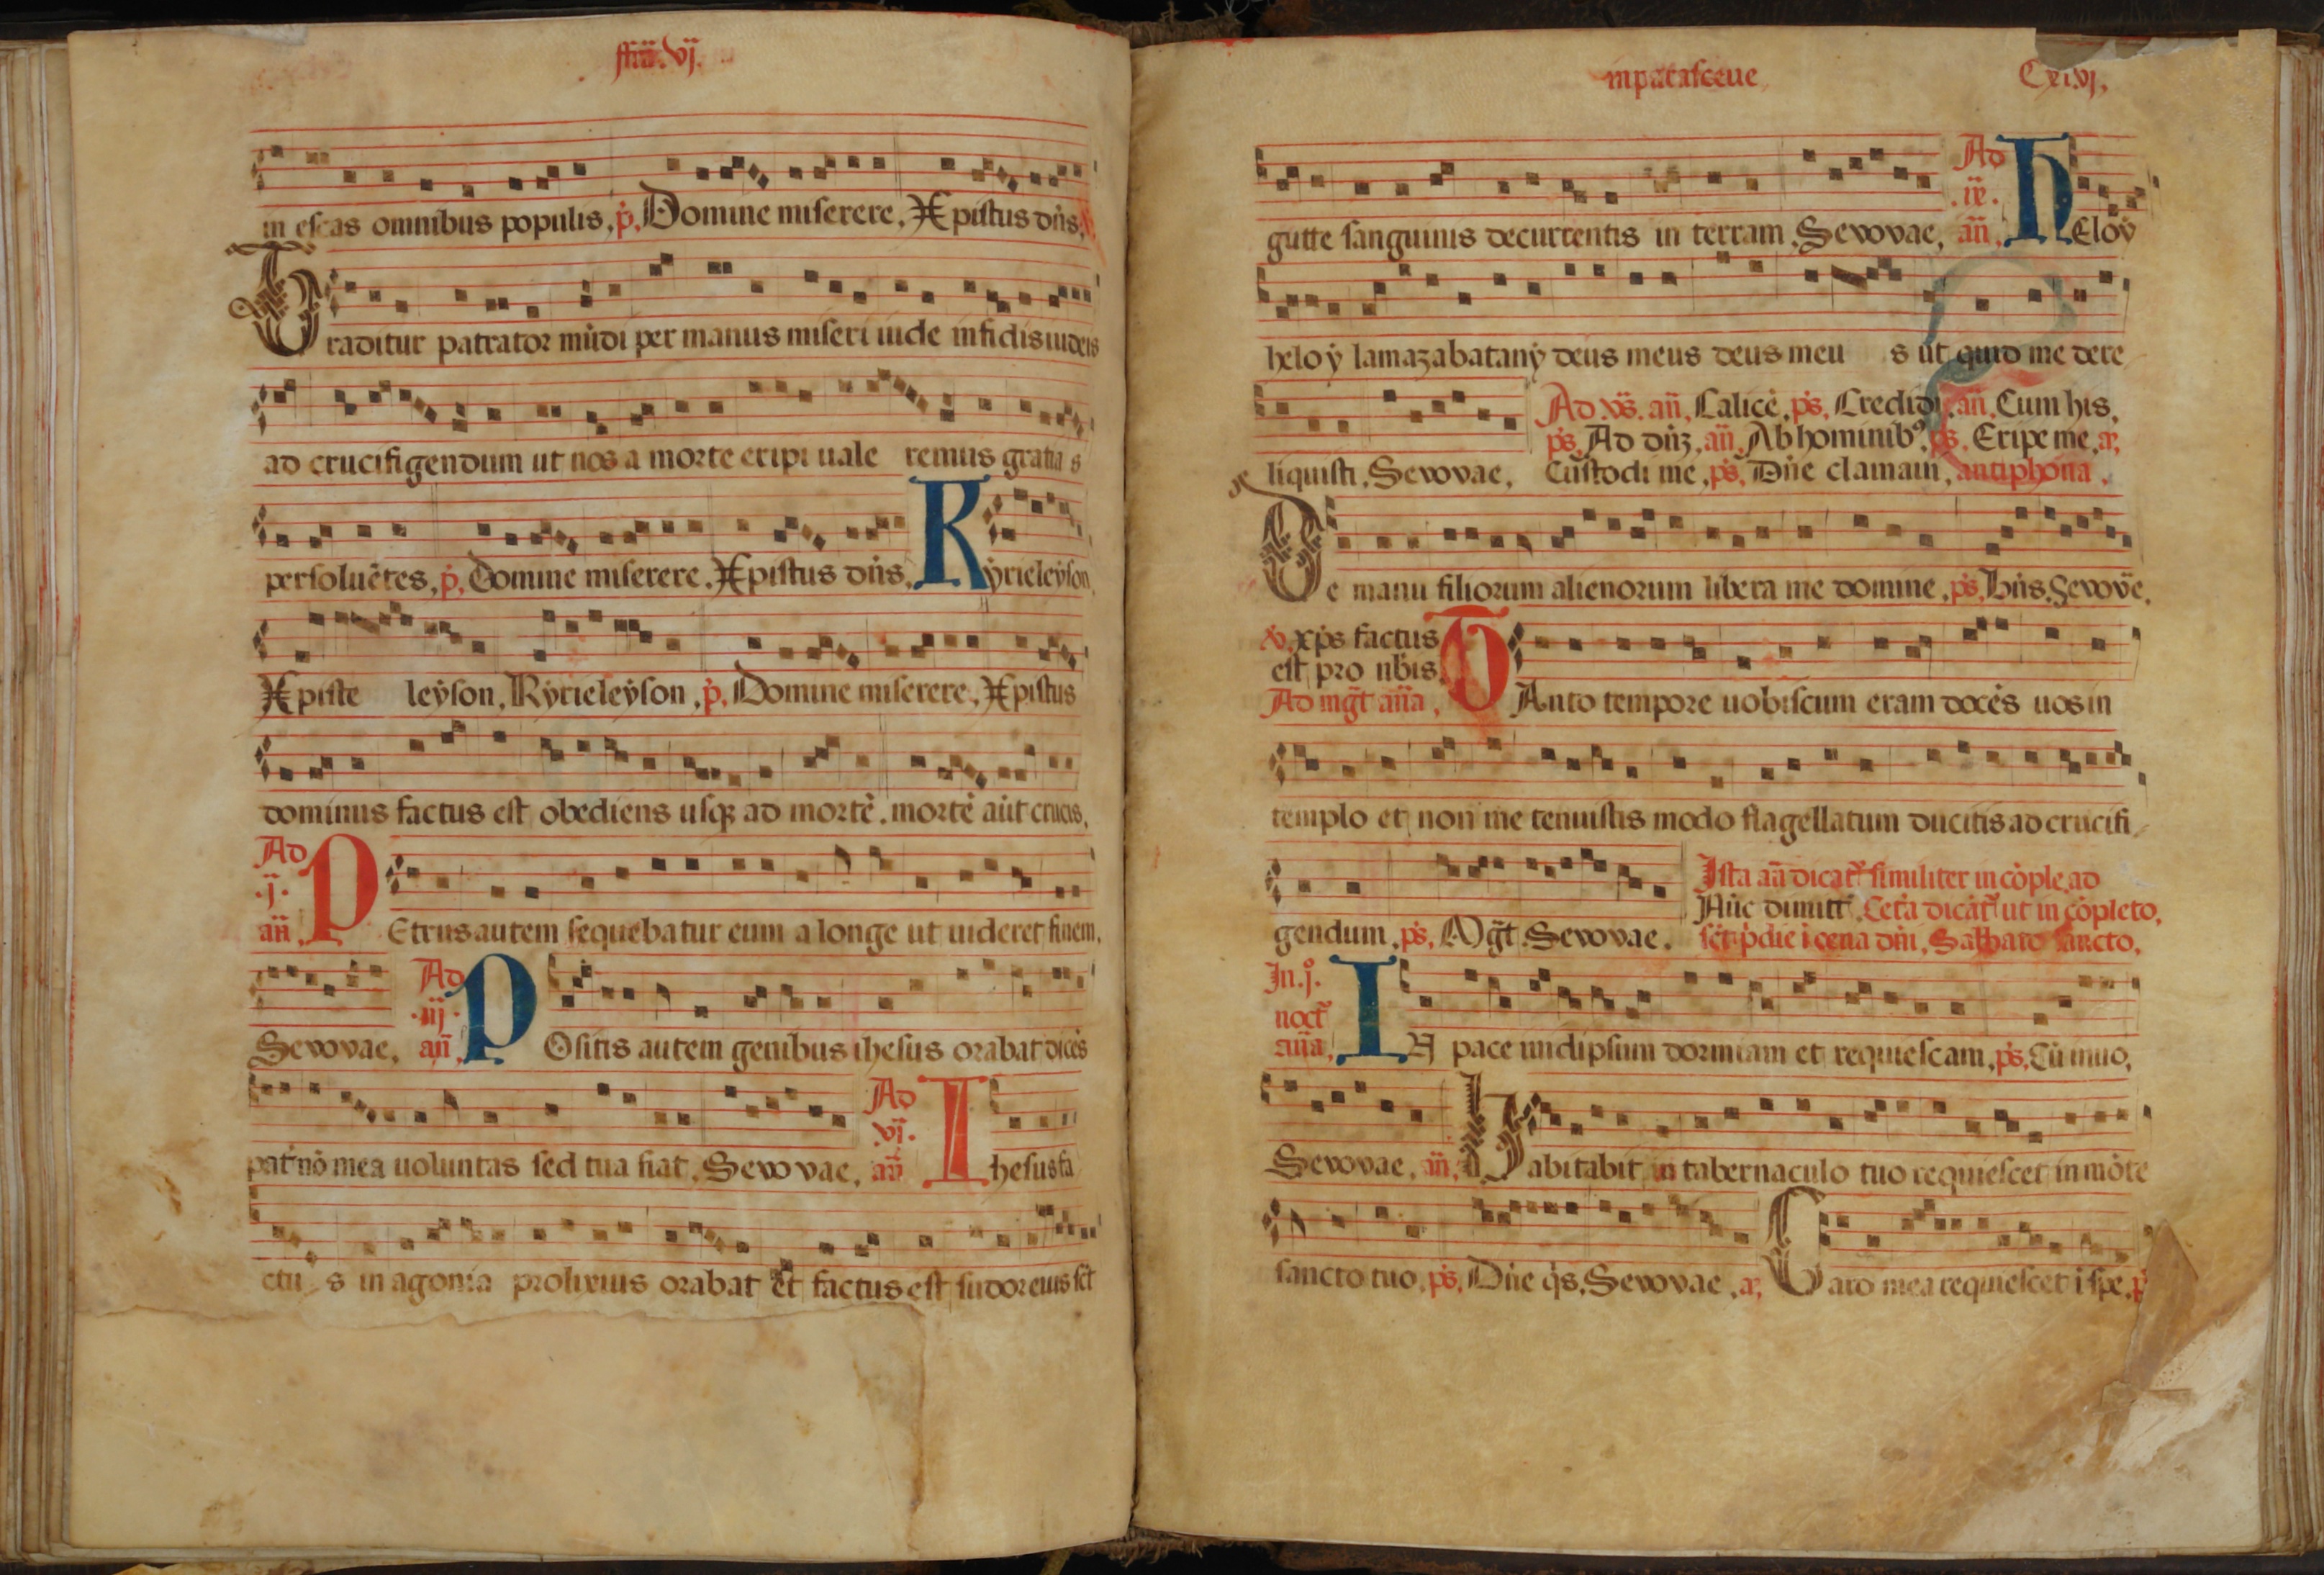 fria. vj.
in escas omnibus populis, p̉, Domine miserere, Xpistus dn̄s,
Traditur patrator mūdi per manus miseri iude infidis iudeis
ad crucifigendum ut nos a morte eripi uale remus gratia s
persoluētes, p̉, Domine miserere. Xpistus dn̄s, Kẏrieleẏson,
Xpiste leẏson, Kẏrieleẏson, p̉, Domine miserere, Xpistus
dominus factus est obediens usq ad mortē. mortē aūt crucis,
Ad .j. an̄, PEtrus autem sequebatur eum a longe ut uideret finem,
Seuouae, Ad .iij. an̄, POsitis autem genibus ihesus orabat dicēs
pat nō mea uoluntas sed tua fiat, Seuouae, Ad .vj. an̄ Ihesus fa
ctu s in agonia prolixius orabat et factus est sudor eius sēt
in parasceue Cxlvj,
gutte sanguinis decurrentis in terram, Seuouae, Ad .ix. an̄, hEloẏ
heloẏ lamazabatanẏ deus meus deus meu s ut quid me dere
liquisti, Seuouae,
Ad vs̄. an̄, Calicē, ps̄, Credidi, an̄, Cum his,
ps̄, Ad dn̄z, an̄, Ab hominibꝰ, ps̄, Eripe me, a,
Custodi me, ps̄, Dn̄e clamaui, antiphona,
De manu filiorum alienorum libera me domine, ps̄, Seuoue,
v̇, xp̄s factus
est pro nb̄is,
Ad mḡt an̄a, TAnto tempore uobiscum eram docēs uos in
templo et non me tenuistis modo flagellatum ducitis ad crucifi
gendum, ps̄, Mḡt. Seuouae,
Ista an̄ dicat similiter in cōple, ad
Nūc dimitt, Cet̄a dicāt ut in cōpleto,
i cena dn̄i, Sabbato sancto,
In .j. noct an̄a, IN pace in idipsum dormiam et requiescam, ps̄, Cū inuo,
Seuouae, an̄, habitabit in tabernaculo tuo requiescet in mōte
sancto tuo, ps̄, Dn̄e q̄s, Seuouae, a, Caro mea requiescet i spe, p